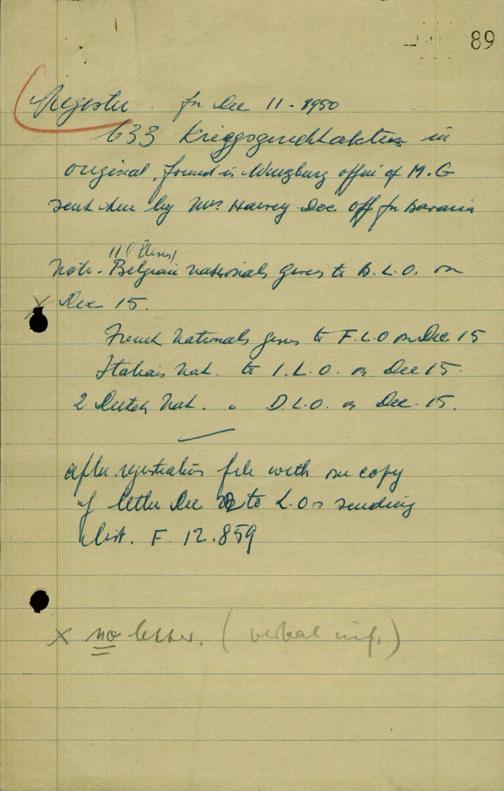 89
Register for Dec 11-1950
633 Kriegsgerichtsakten in
original, found in Wurzburg office of M.G
sent here by Mrs Harvey Doc. off for Bavaria
11 (eleven)
Note - Belgian nationals given to B.L.O. on
x Dec 15.
French Nationals given to F.L.O on Dec 15
Italian Nat. to I.L.O. on Dec 15
2 Dutch Nat. " D.L.O. on Dec. 15.
after registration file with one copy
of letter Dec to L.Os sending
list. F. 12.859
x no letter. (verbal inf.)